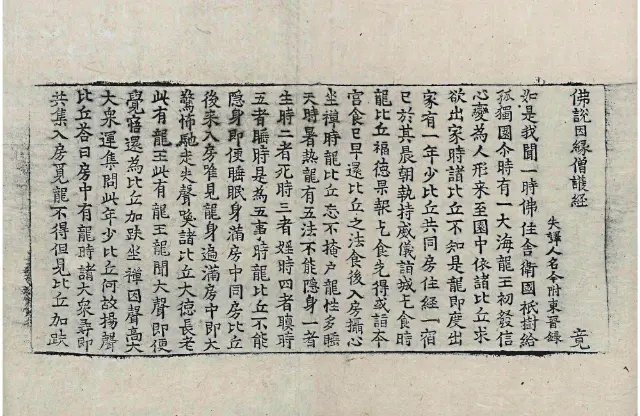 佛說因緣僧護經
失譯人名今附東晉錄 竟
如是我聞一時佛住舍衛國祇樹給
孤獨園尒時有一大海龍王初發信
心變為人形來至園中依諸比丘求
欲出家時諸比丘不知是龍即度出
家有一年少比丘共同房住經一宿
已於其晨朝執持威儀詣城乞食時
龍比丘福德果報乞食先得或詣本
宮食已早還比丘之法食後入房攝心
坐禪時龍比丘忘不掩戶龍性多睡
天時暑熱龍有五法不能隱身一者
生時二者死時三者婬時四者瞋時
五者睡時是為五事尒時龍比丘不能
隱身即便睡眠身滿房中同房比丘
後來入房雀見龍身遍滿房中即大
驚怖馳走失聲喚諸比丘大德長老
此有龍王此有龍王龍聞大聲即便
覺寤還為比丘加趺坐禪因聲高大
大衆運集問此年少比丘何故揚聲
比丘荅曰房中有龍時諸大衆尋即
共集入房覓龍不得但見比丘加趺